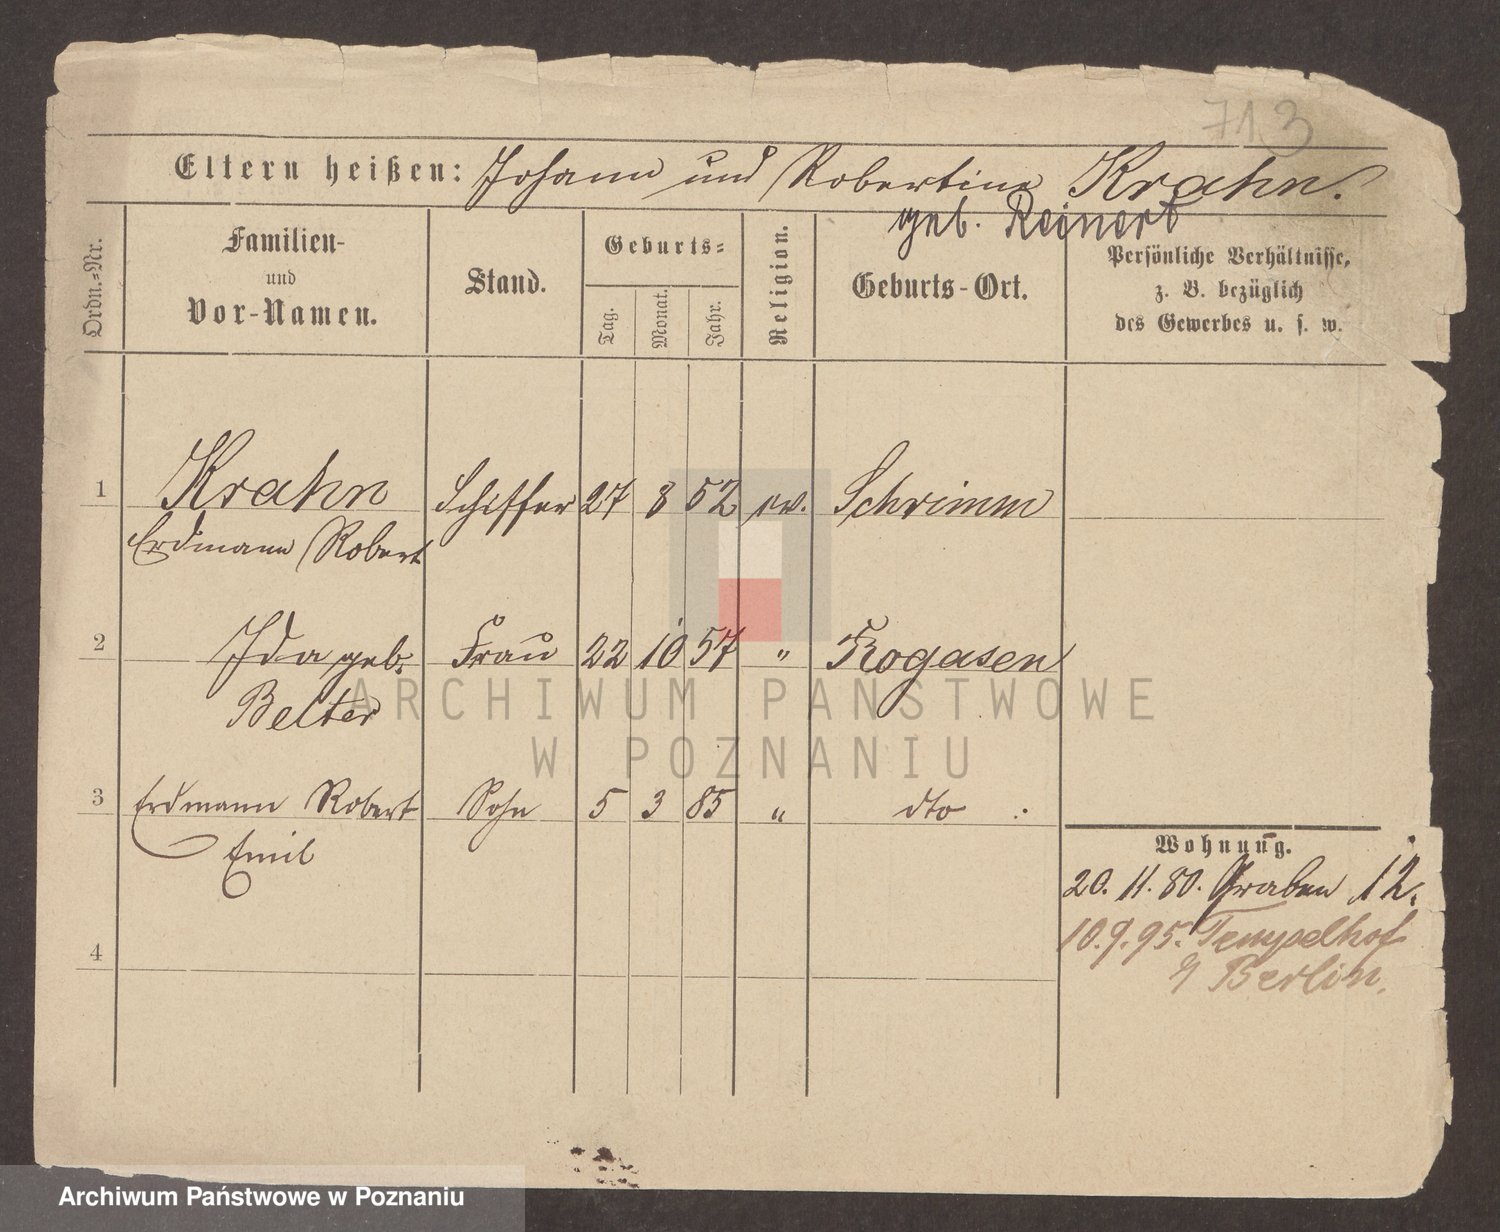 713
Eltern heißen: Johann und Robertine Krahn.
geb. Reinert
Ordn.-Nr.
Familien- und Vor-Namen.
Stand.
Geburts-
Tag.
Monat.
Jahr.
Religion.
Geburts-Ort.
Persönliche Verhältnisse,
z. B. bezüglich
des Gewerbes u. s. w.
1 Krahn Schiffer 27 8 52 ev. Schrimm
Erdmann Robert
2 Ida geb. Frau 22 10 57 " Rogasen
Belter
ARCHIWUM PAŃSTWOWE
W POZNANIU
3 Erdmann Robert Sohn 5 3 85 " dto
Emil
Wohnung.
20. 11. 80. Graben 12.
10. 9. 95. Tempelhof
Berlin.
4
Archiwum Państwowe w Poznaniu